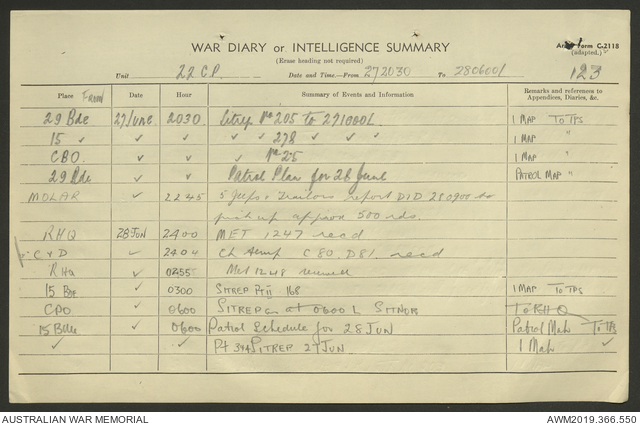 WAR DIARY or INTELLIGENCE SUMMARY
Army Form C.2118
(Erase heading not required)
(adapted.)
Unit 22 C.P. Date and Time—From 272030 To 280600/
123
Place From Date Hour Summary of Events and Information Remarks and references to Appendices, Diaries, &c.
29 Bde 27/JUNE 2030 Sitrep No 205 to 271000L 1 MAP TO TPS
15 " ✓ ✓ " " 278 ✓ ✓ ✓ 1 MAP "
CBO. ✓ ✓ " No 25 1 MAP "
29 Bde ✓ ✓ Patrol Plan for 28 June PATROL MAP "
MOLAR ✓ 2245 5 Jeeps + Trailers report DID 280900 to
pick up approx 500 rds.
RHQ 28 JUN 2400 MET 1247 recd
C & D ✓ 2404 C80, D81, recd
RHQ ✓ 0255 Met 1248 received
15 Bde ✓ 0300 SITREP Pt II 168 1 MAP TO TPS
CPO ✓ 0600 SITREP at 0600 L TO RHQ
15 Bde ✓ 0600 Patrol Schedule for 28 JUN Patrol Map To TPS
✓ ✓ Pt 3+4 SITREP 27 JUN 1 Map ✓
AUSTRALIAN WAR MEMORIAL AWM2019.366.550